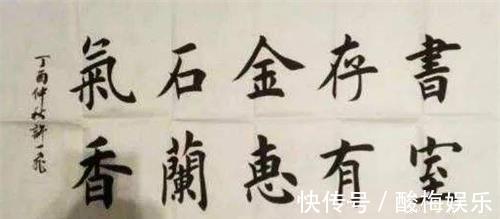 書存金石氣
室有惠蘭香
丁酉仲秋許一飛
快传号 / 酸梅娱乐